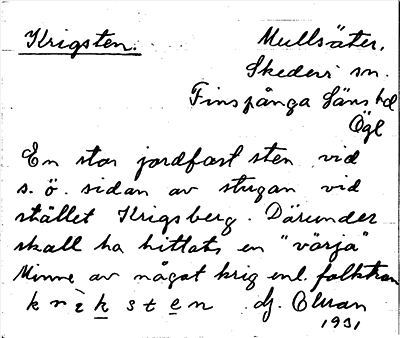 Krigsten.
Mullsäter,
Skedevi sn.
Finspånga läns hd
Ögl
En stor jordfast sten vid
s. ö. sidan av stugan vid
stället Krigsberg. Därunder
skall ha hittats en "värja"
Minne av något krig enl. folktron
k r ì k s t e n
1931